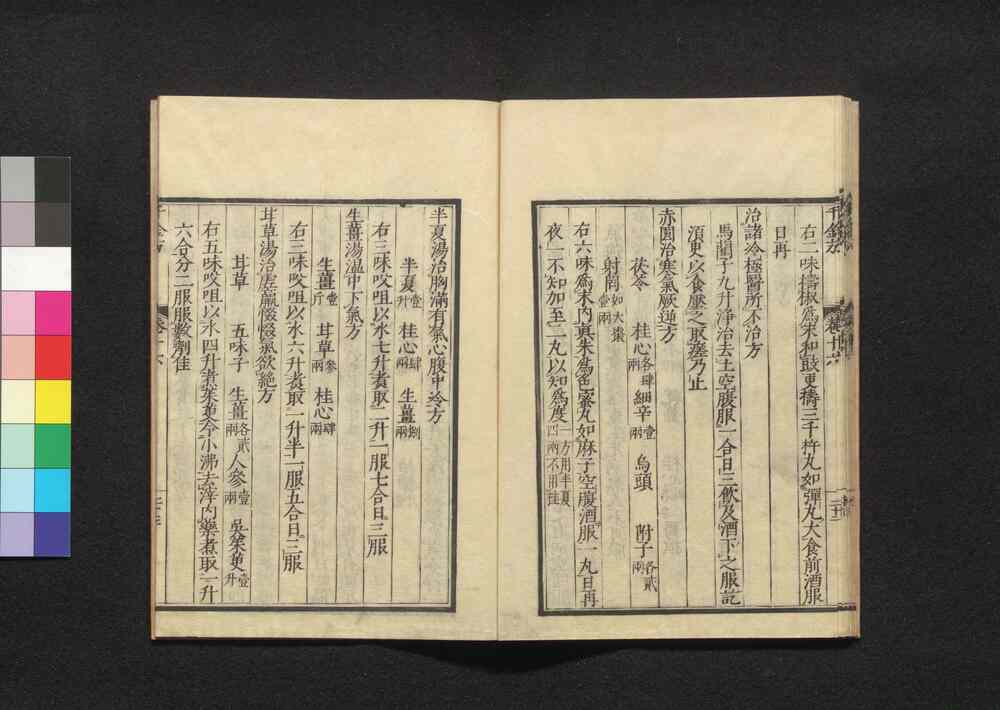 右二味擣椒爲末和豉更擣三千杵丸如彈丸大食前酒服
日再
治諸冷極醫所不治方
馬藺子九升淨治去土空腹服一合日三飲及酒下之服訖
須臾以食壓之取瘥乃止
赤圓治寒氣厥逆方
茯苓 桂心各肆兩 細辛壹兩 烏頭 附子各貳兩
射罔如大棗壹兩
右六味爲末內真朱爲色蜜丸如麻子空腹酒服一丸日再
夜一不知加至二丸以知爲度一方用半夏四兩不用桂
半夏湯治胸滿有氣心腹中冷方
半夏壹升 桂心肆兩 生薑捌兩
右三味㕮咀以水七升煮取二升一服七合日三服
生薑湯溫中下氣方
生薑壹斤 甘草參兩 桂心肆兩
右三味㕮咀以水六升煮取一升半一服五合日三服
甘草湯治虛羸惙惙氣欲絕方
甘草 五味子 生薑各貳兩 人參壹兩 吳茱萸壹升
右五味㕮咀以水四升煮茱萸令小沸去滓內藥煮取一升
六合分二服服數劑佳
千金方